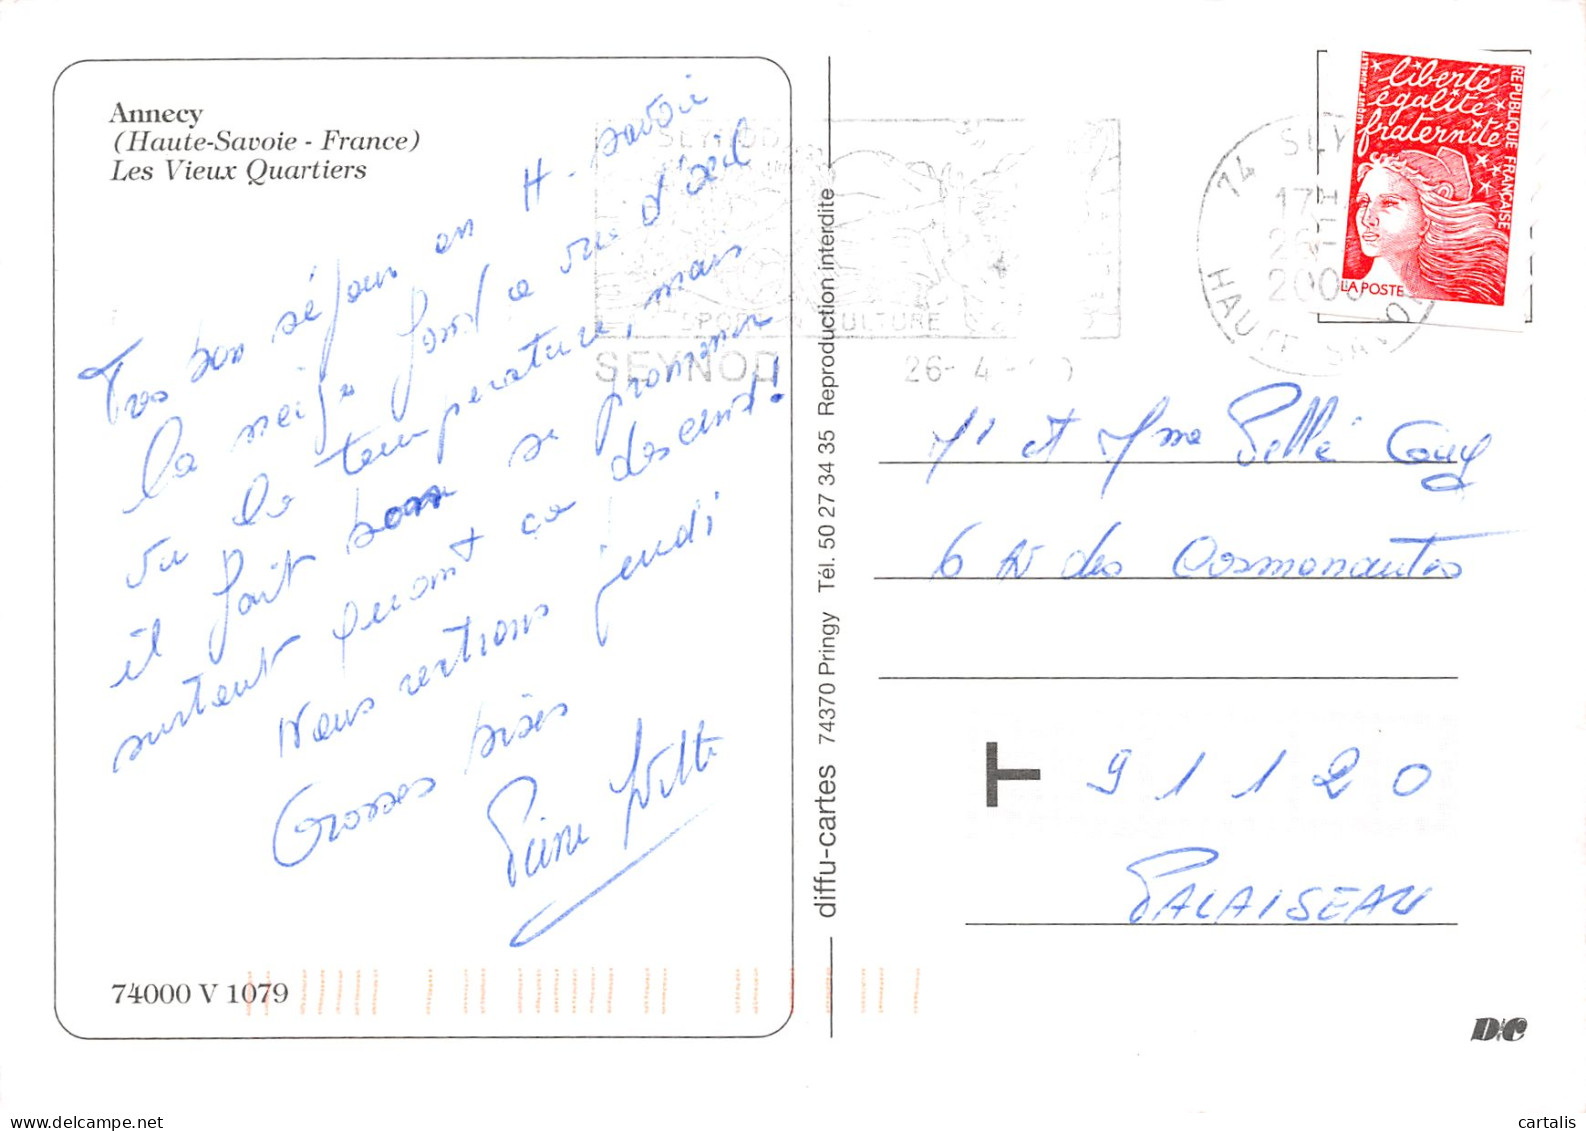 Annecy
(Haute-Savoie - France)
Les Vieux Quartiers
Très bon séjour en H. Savoie
la neige fond a vue d'œil
vu la température, mais
il fait bon se promener
surtout quant ça descend!
Nous rentrons jeudi
Grosses bises
74000 V 1079
diffu-cartes 74370 Pringy Tél. 50 27 34 35 Reproduction interdite
SEYNOD
SPORT CULTURE
SEYNOD 26-4-
74 SEY
17H
2000
HAUTE SAVO
liberté
égalité
fraternité
RÉPUBLIQUE FRANÇAISE
LA POSTE
Mr et Mme Pellé Guy
6 Av des Cosmonautes
T 91120
PALAISEAU
D&C
cartalis